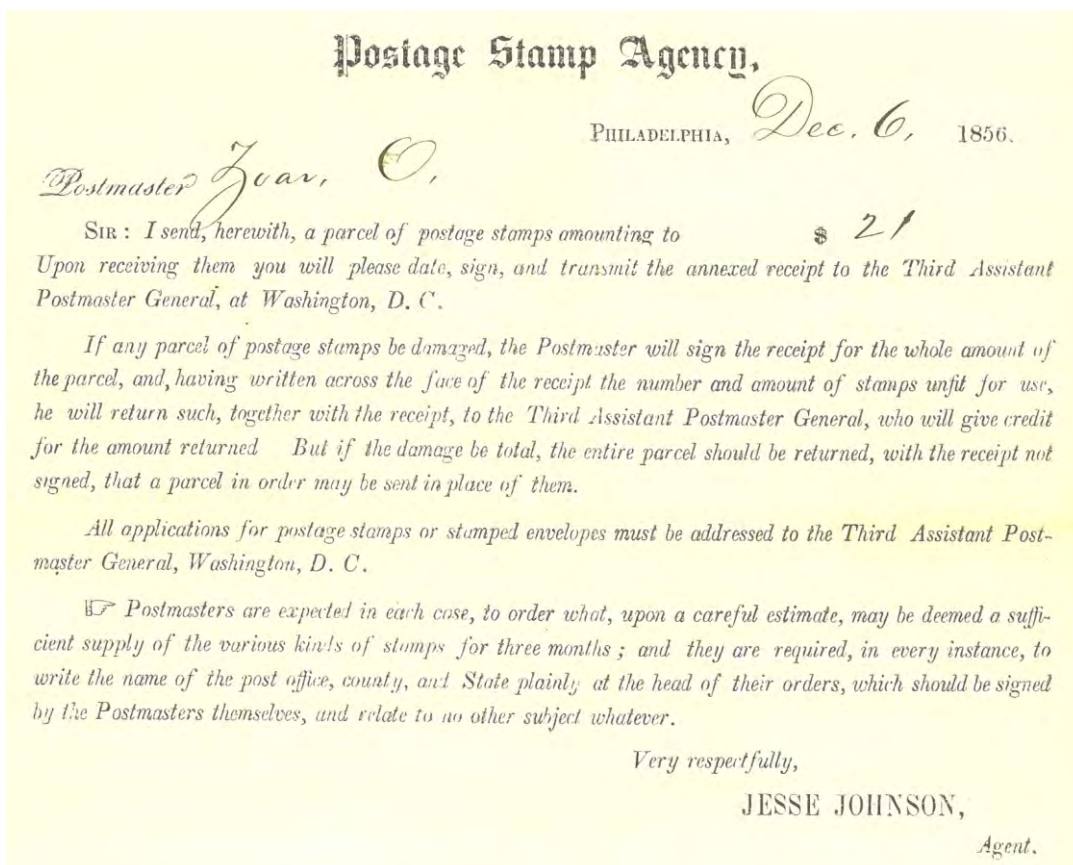 Postage Stamp Agency,
PHILADELPHIA, Dec. 6, 1856.
Postmaster Zoar, O,
SIR : I send, herewith, a parcel of postage stamps amounting to $ 21
Upon receiving them you will please date, sign, and transmit the annexed receipt to the Third Assistant
Postmaster General, at Washington, D. C.
If any parcel of postage stamps be damaged, the Postmaster will sign the receipt for the whole amount of
the parcel, and, having written across the face of the receipt the number and amount of stamps unfit for use,
he will return such, together with the receipt, to the Third Assistant Postmaster General, who will give credit
for the amount returned But if the damage be total, the entire parcel should be returned, with the receipt not
signed, that a parcel in order may be sent in place of them.
All applications for postage stamps or stamped envelopes must be addressed to the Third Assistant Post-
master General, Washington, D. C.
☞ Postmasters are expected in each case, to order what, upon a careful estimate, may be deemed a suffi-
cient supply of the various kinds of stamps for three months ; and they are required, in every instance, to
write the name of the post office, county, and State plainly at the head of their orders, which should be signed
by the Postmasters themselves, and relate to no other subject whatever.
Very respectfully,
JESSE JOHNSON,
Agent.